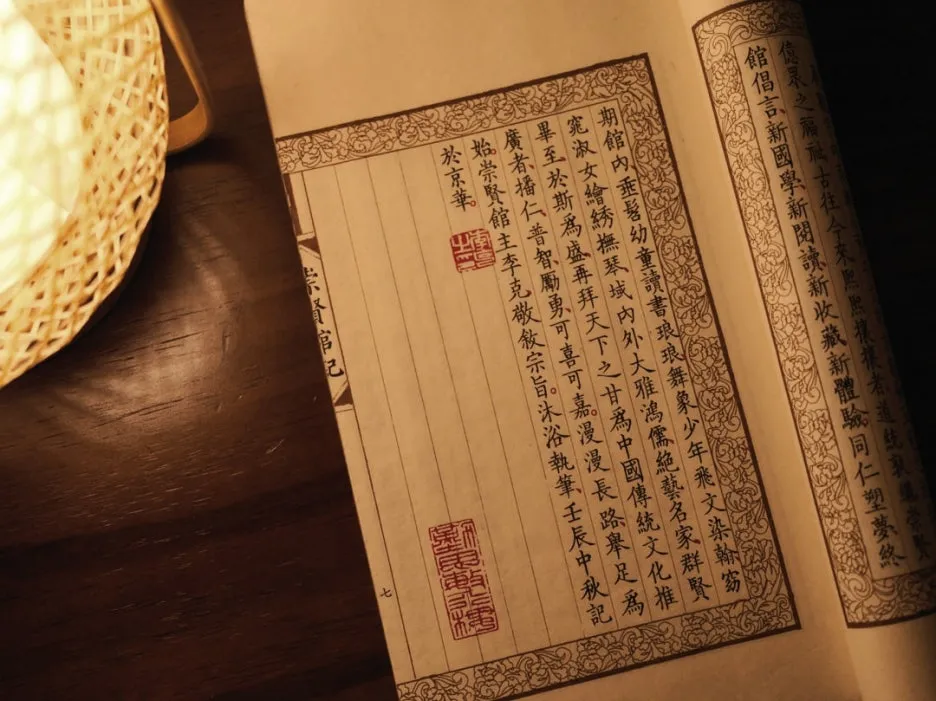 億眾之福祉古往今來熙熙攘攘者道統藝崇賢
館倡言、新國學、新閱讀、新收藏、新體驗。同仁塑夢終
期館內垂髫幼童讀書琅琅、舞象少年飛文染翰、窈
窕淑女繪綉撫琴、域內外大雅鴻儒、絕藝名家、群賢
畢至、於斯爲盛。再拜天下之甘爲中國傳統文化推
廣者、播仁、普智、勵勇、可喜可嘉。漫漫長路、舉足爲
始。崇賢館主李克敬敘宗旨、沐浴執筆、壬辰中秋記
於京華。
崇賢館記
七